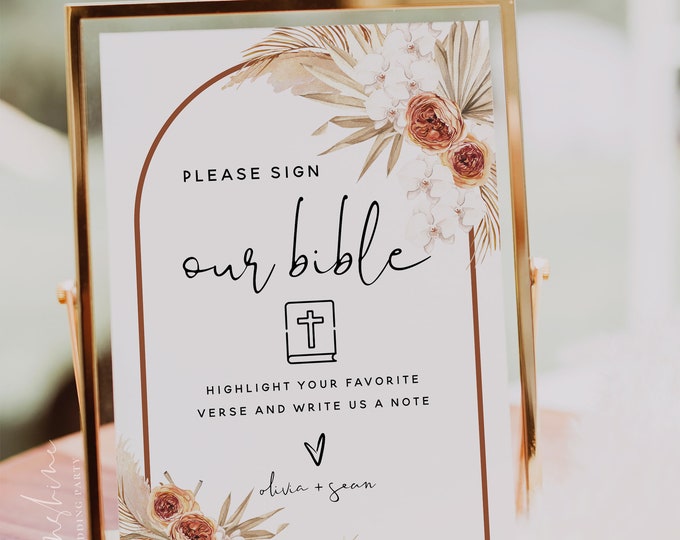 PLEASE SIGN
our bible
HIGHLIGHT YOUR FAVORITE
VERSE AND WRITE US A NOTE
olivia + sean
DDING PARTY